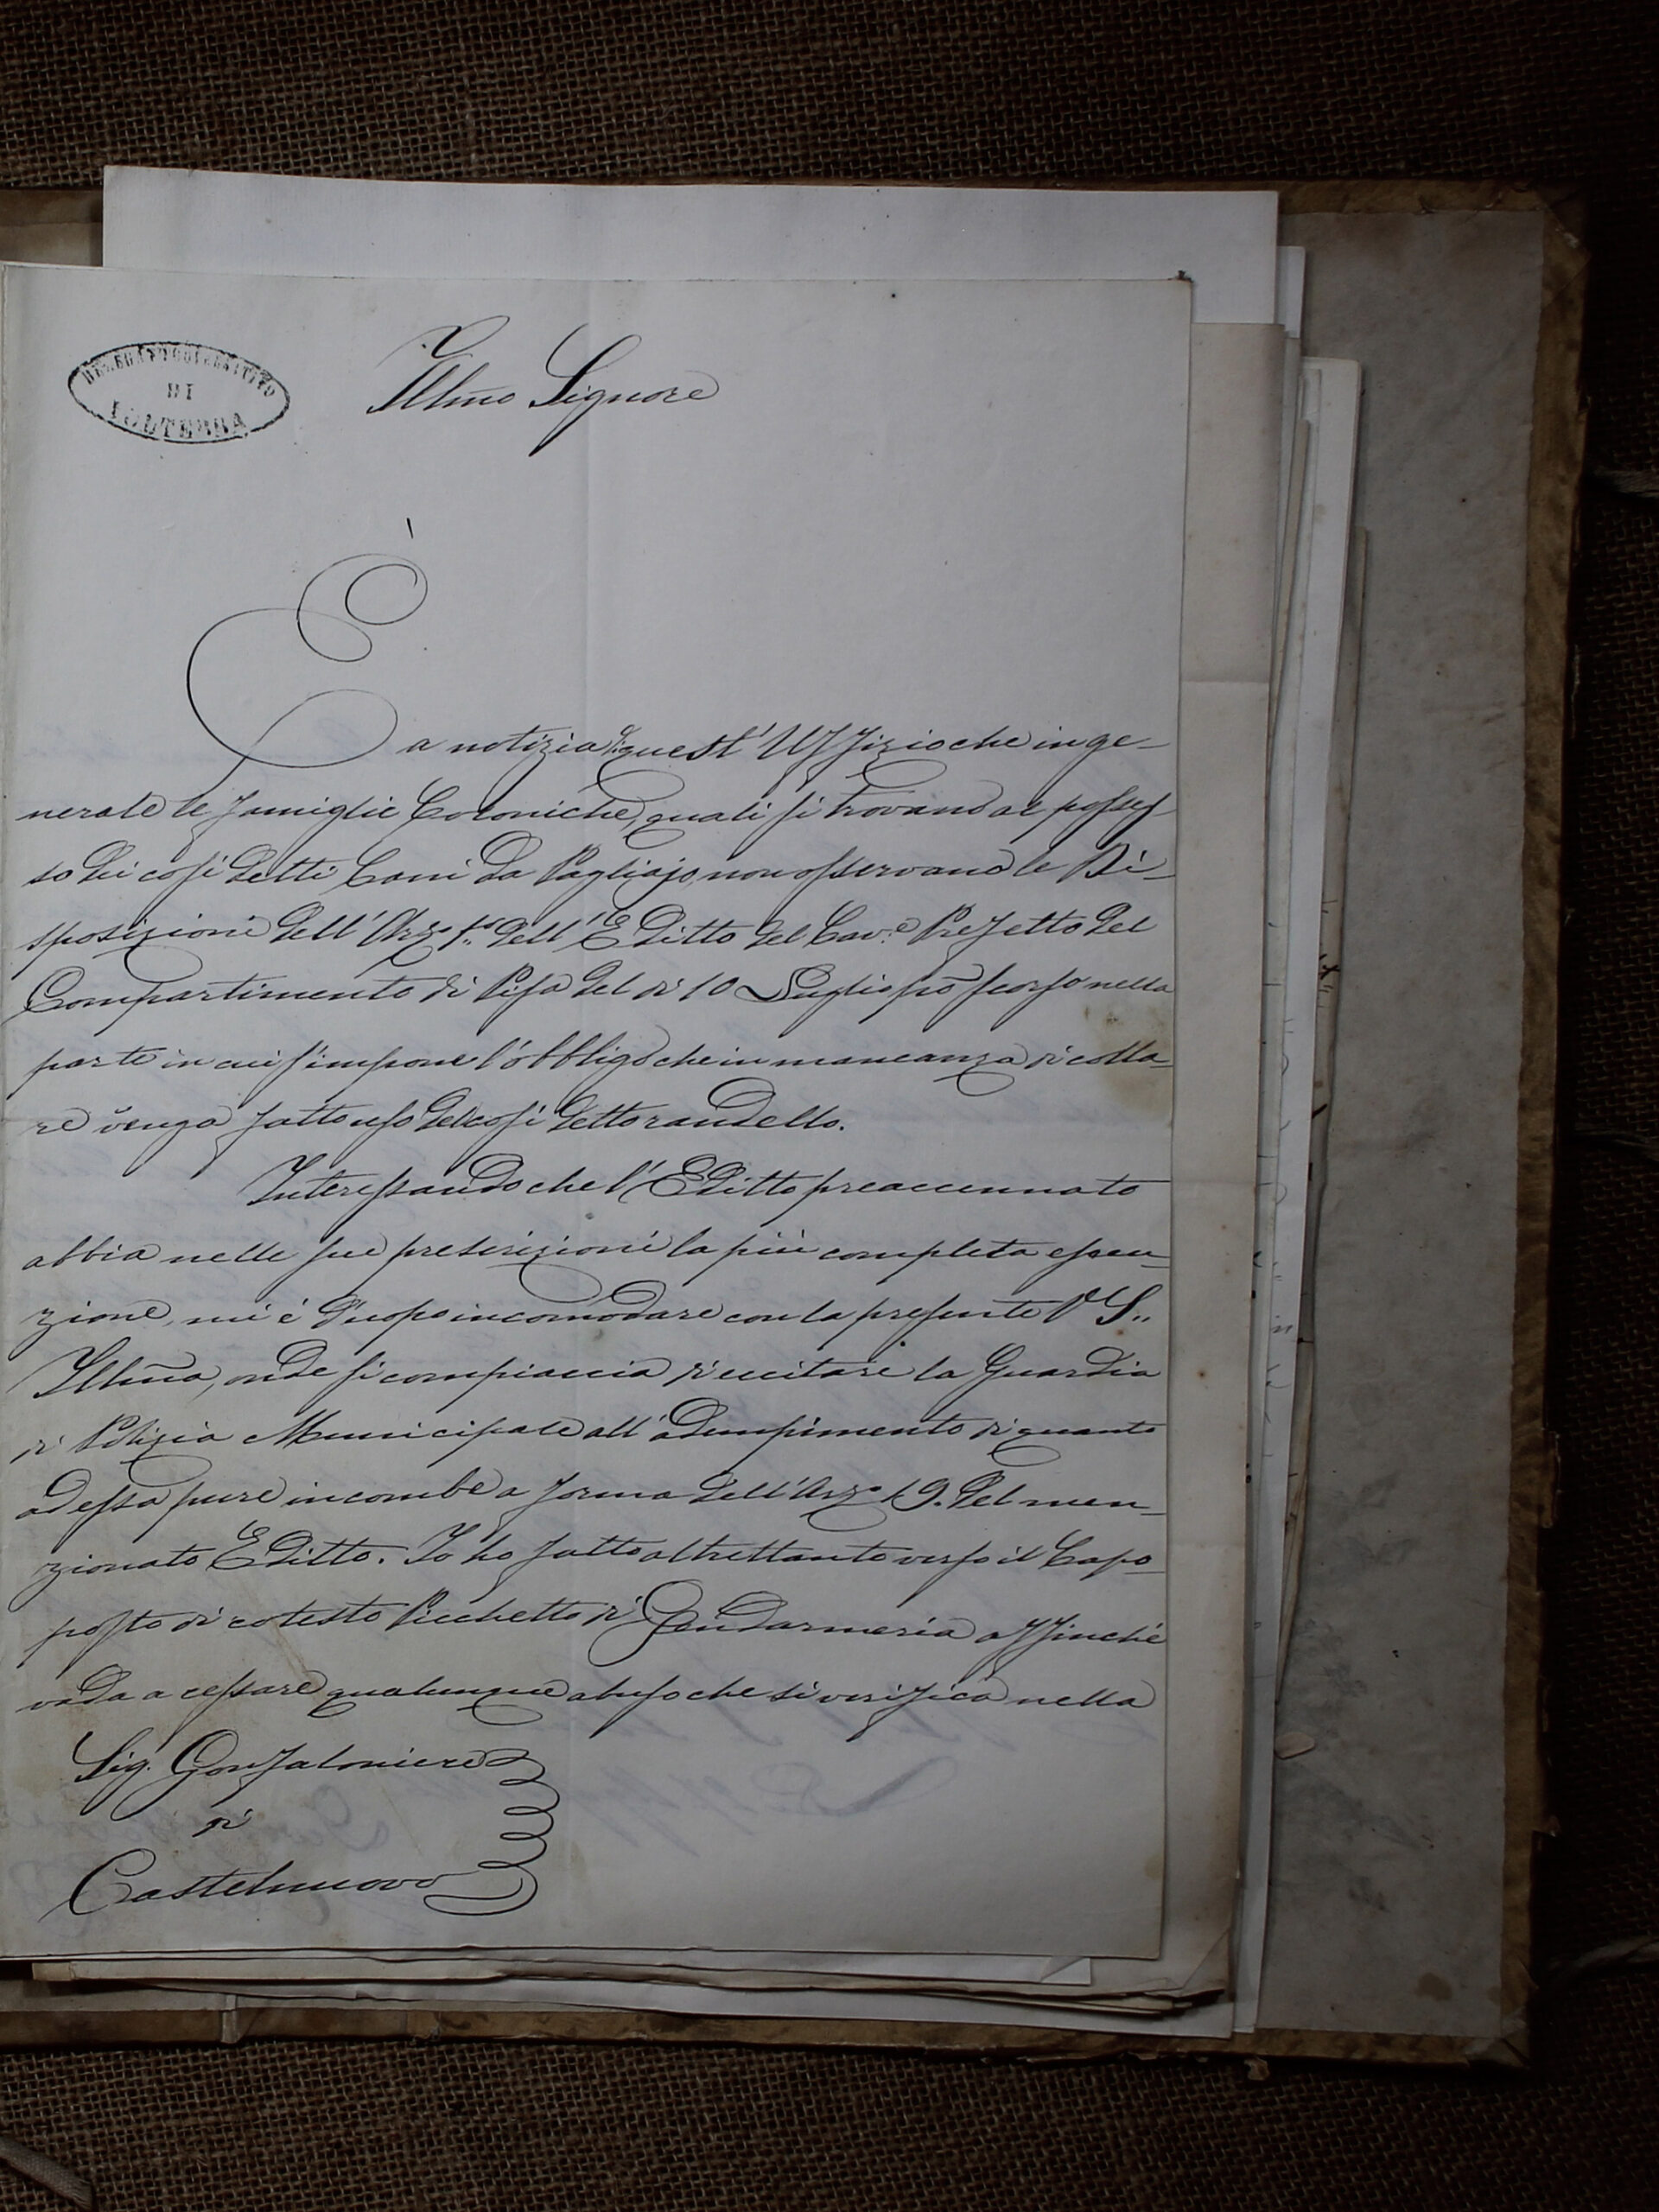 DELEGATO GOVERNATIVO
DI
VOLTERRA
Illmo Signore
È
a notizia di quest' Uffizio che in ge-
nerale le famiglie Coloniche, quali si trovano al posses-
so dei così detti Cani da Pagliajo, non osservano le Di-
sposizioni dell' Arto 1.º dell' Editto del Cav.e Prefetto del
Compartimento di Pisa del dì 10 Luglio pro scorso nella
parte in cui s'impone l'obbligo che in mancanza di colla-
re venga fatto uso del così detto randello.
Interessando che l' Editto preaccennato
abbia nelle sue prescrizioni la più completa esecu-
zione, mi è d'uopo incomodare con la presente V S..
Illma, onde si compiaccia di eccitare la Guardia
di Polizia Municipale all' adempimento di quanto
ad essa pure incombe a forma dell' Arto 19. del men-
zionato Editto. Io ho fatto altrettanto verso il Capo-
posto di cotesto Picchetto di Gendarmeria affinché
vada a cessare qualunque abuso che si verifica nella
Sig. Gonfaloniere
di
Castelnuovo